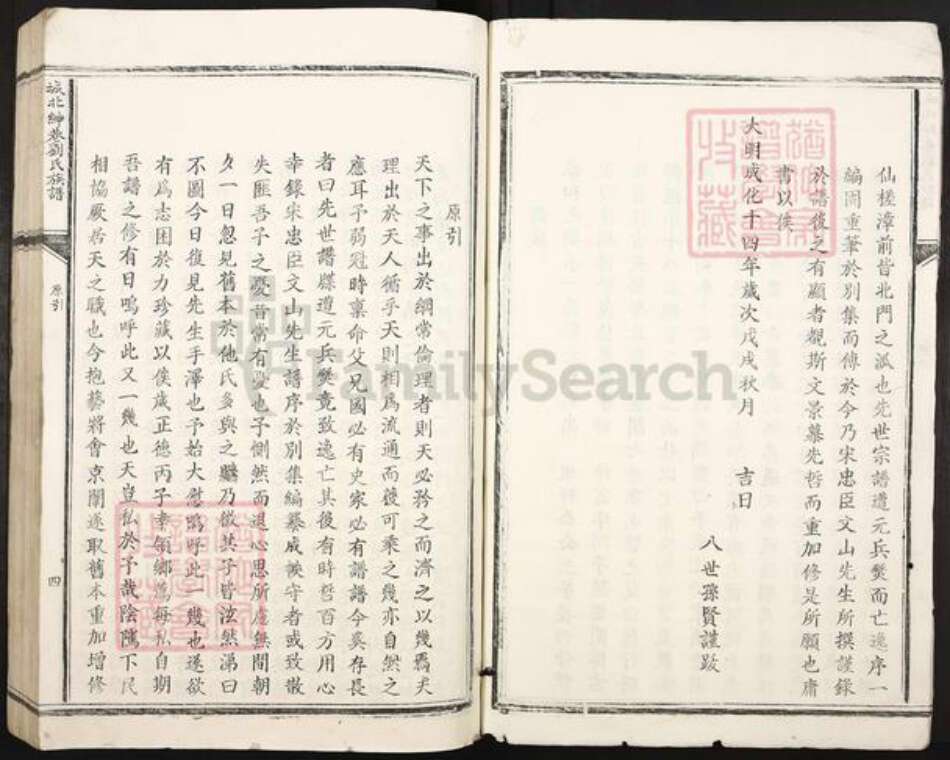 仙槎漳前皆北門之派也先世宗譜遭元兵燹而亡逸序一
編閣重筆於別集而傳於今乃宋忠臣文山先生所撰謹錄
於譜後之有顯者覩斯文景慕先哲而重加修是所願也庸
書以俟
大明成化十四年歲次戊戌秋月 吉日
八世孫賢謹跋
原引
天下之事出於綱常倫理者則天必矜之而濟之以幾焉夫
理出於天人循乎天則相爲流通而彼可乘之幾亦自然之
應耳予弱冠時稟命父兄國必有史家必有譜譜今奚存長
者曰先世譜牒遭元兵燹竟致逸亡其後有時哲百方用心
幸錄宋忠臣文山先生譜序於別集編纂成帙守者或致散
失匪吾子之憂昔常有憂也予惻然而退心思所慮無間朝
夕一日忽見舊本於他氏多與之 乃倣其子皆泫然涕曰
不圖今日復見先生手澤也予始大慰嗚呼此一幾也遂欲
有爲志困於力珍藏以俟歲正德丙子幸領鄉薦每私自期
吾譜之修有日嗚呼此又一幾也天豈私於予哉陰騭下民
相協厥居天之職也今抱藝將會京闈遂取舊本重加增修
城北 巷劉氏族譜
原引
四
FamilySearch